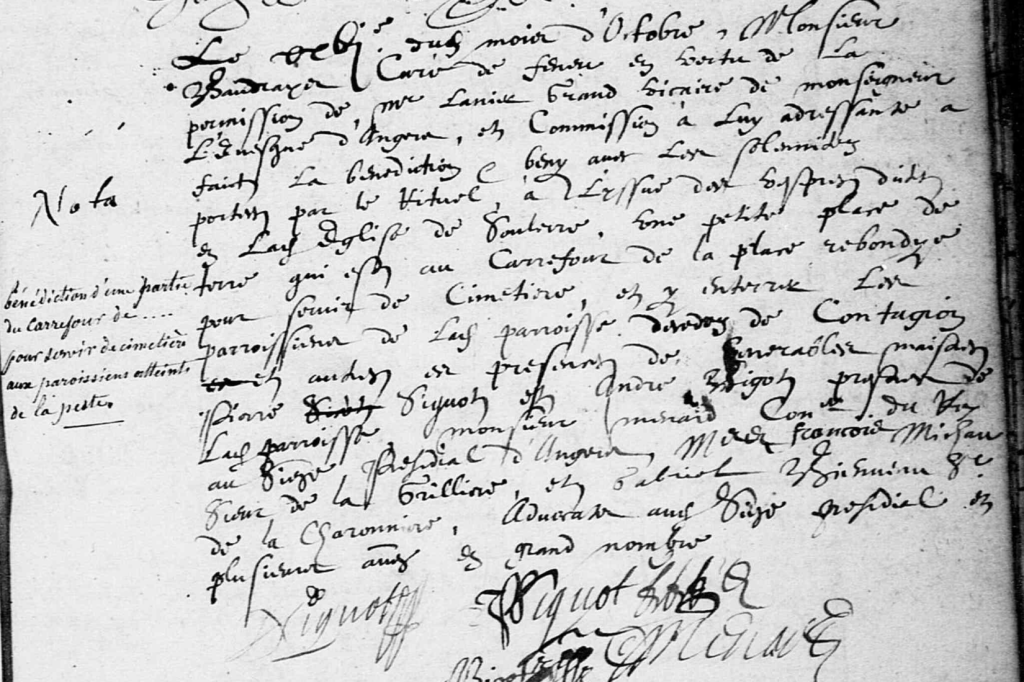 Le xxbje dud moies d'Octobre, Monsieur
Baudrayer Curé de feneu en vertu de la
permission de mr Lanier Grand vicaire de monseigneur
L'Evesque d'Angers, et Commission à Luy adressante a
faict La benediction & beny avec Les solemnites
portees par le Rituel, à L'issue des vespres dittes
en Lad Eglise de Souterre, une petite place de
terre qui est au Carrefour de la place rebondye
pour servir de Cimetiere, et y enterrer Les
parroissiens de Lad parroisse de Contagion
et en presences de Venerables maistres
Pierre Siquot et André Bigot prestres de
Lad parroisse monsieur menard Coner du Roy
au Siege Presidial d'Angers, Mes François Michau
Sieur de la Grilliere, et Gabriel Sr
de la Charonniere, Advocats aud Siege presidial et
plusieurs aues en grand nombre
Nota
bénédiction d'une partie
du Carrefour de ....
pour servir de cimetière
aux paroissiens atteints
de la peste.
Siquot
P Siquot
Menard